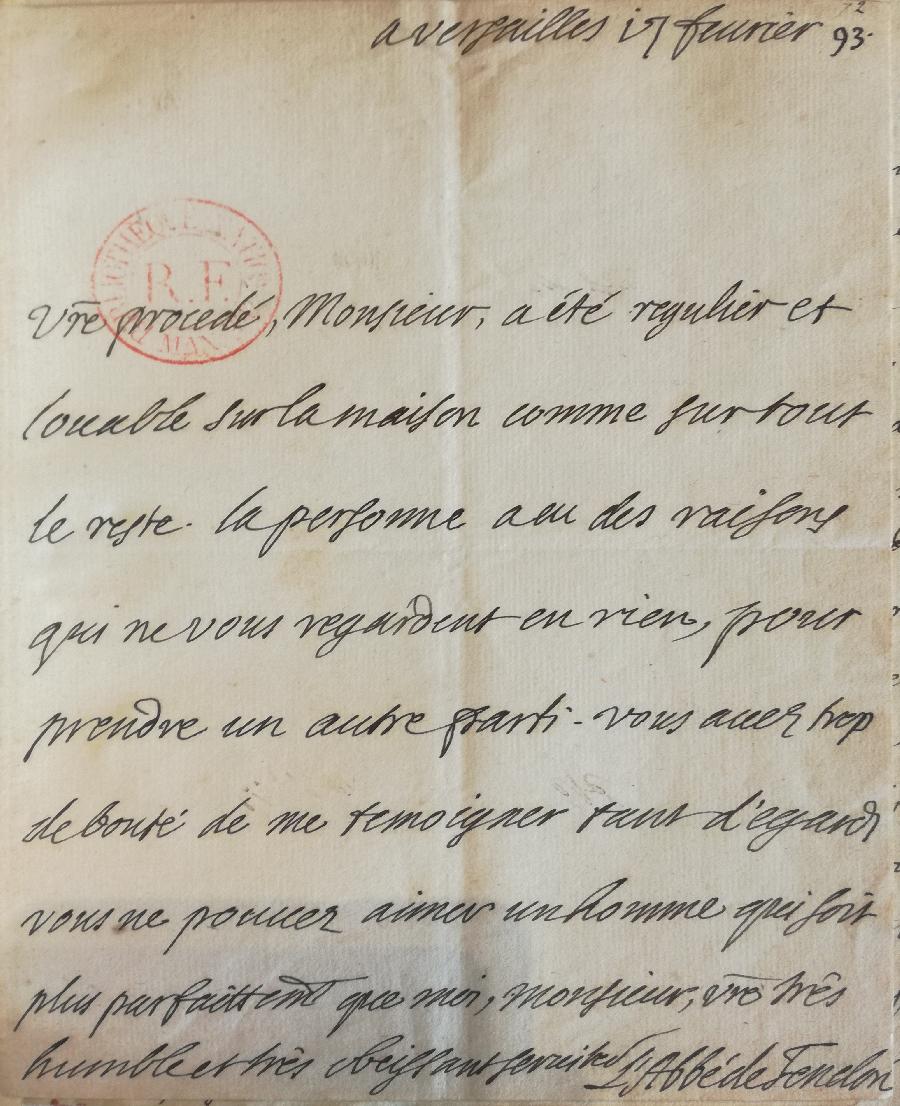 a versailles 17 feurier 93.
BIBLIOTHEQUE NATION
R.F.
MAN
Vr̃e procedé, Monsieur, a été regulier et
louable sur la maison comme sur tout
le reste. la personne a eu des raisons
qui ne vous regardent en rien, pour
prendre un autre parti. vous auez trop
de bonté de me temoigner tant d'égards
vous ne pouuez aimer un homme qui soit
plus parfaittem̃t que moi, monsieur, vr̃e très
humble et très obeissant seruiteur L'Abbé de Fenelon